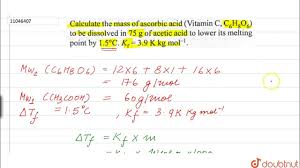 11046407
Calculate the mass of ascorbic acid (Vitamin C, C₆H₈O₆)
to be dissolved in 75 g of acetic acid to lower its melting
point by 1.5°C. K_f = 3.9 K kg mol⁻¹.
Mw₂ (C₆H₈O₆) = 12×6 + 8×1 + 16×6
= 176 g/mol
Mw₁ (CH₃COOH) = 60 g/mol
ΔT_f = 1.5°C , K_f = 3.9 K kg mol⁻¹
ΔT_f = K_f × m
doubtnut